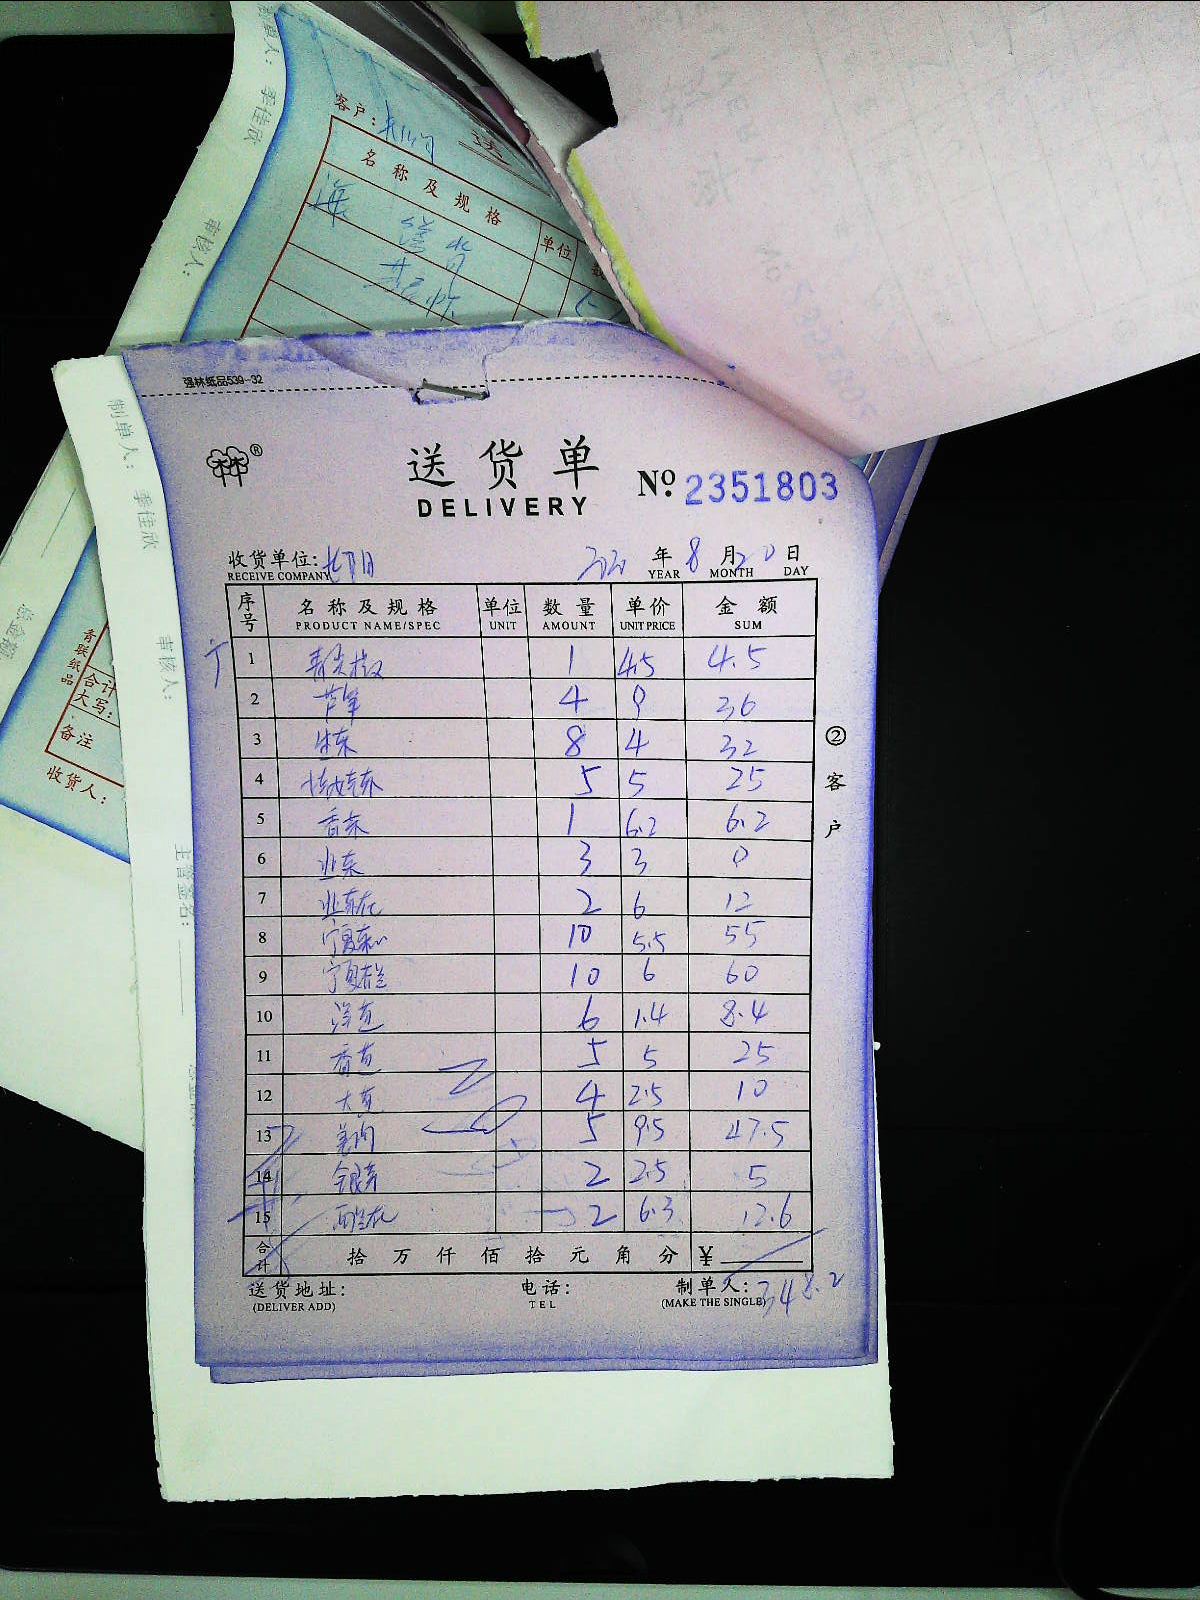 制单人: 季佳欣
审核人:
客户:
名称及规格 单位
强林纸品539-32
送货单
DELIVERY
No. 2351803
收货单位: 年 8 月 20 日
RECEIVE COMPANY YEAR MONTH DAY
序号 名称及规格 单位 数量 单价 金额
PRODUCT NAME/SPEC UNIT AMOUNT UNIT PRICE SUM
1 青尖椒 1 4.5 4.5
2 芦笋 4 9 36
3 生菜 8 4 32
4 5 5 25
5 香菜 1 6.2 6.2
6 韭菜 3 3 9
7 韭菜花 2 6 12
8 宁夏菜心 10 5.5 55
9 宁夏芥兰 10 6 60
10 洋葱 6 1.4 8.4
11 香葱 5 5 25
12 大葱 4 2.5 10
13 5 9.5 47.5
14 银芽 2 2.5 5
15 西兰花 2 6.3 12.6
合计 拾 万 仟 佰 拾 元 角 分 ¥
送货地址: 电话: 制单人: 348.2
(DELIVER ADD) TEL (MAKE THE SINGLE)
② 客户
制单人: 季佳欣
审核人:
主管签名:
总金额
青联纸品
合计
大写:
备注
收货人: